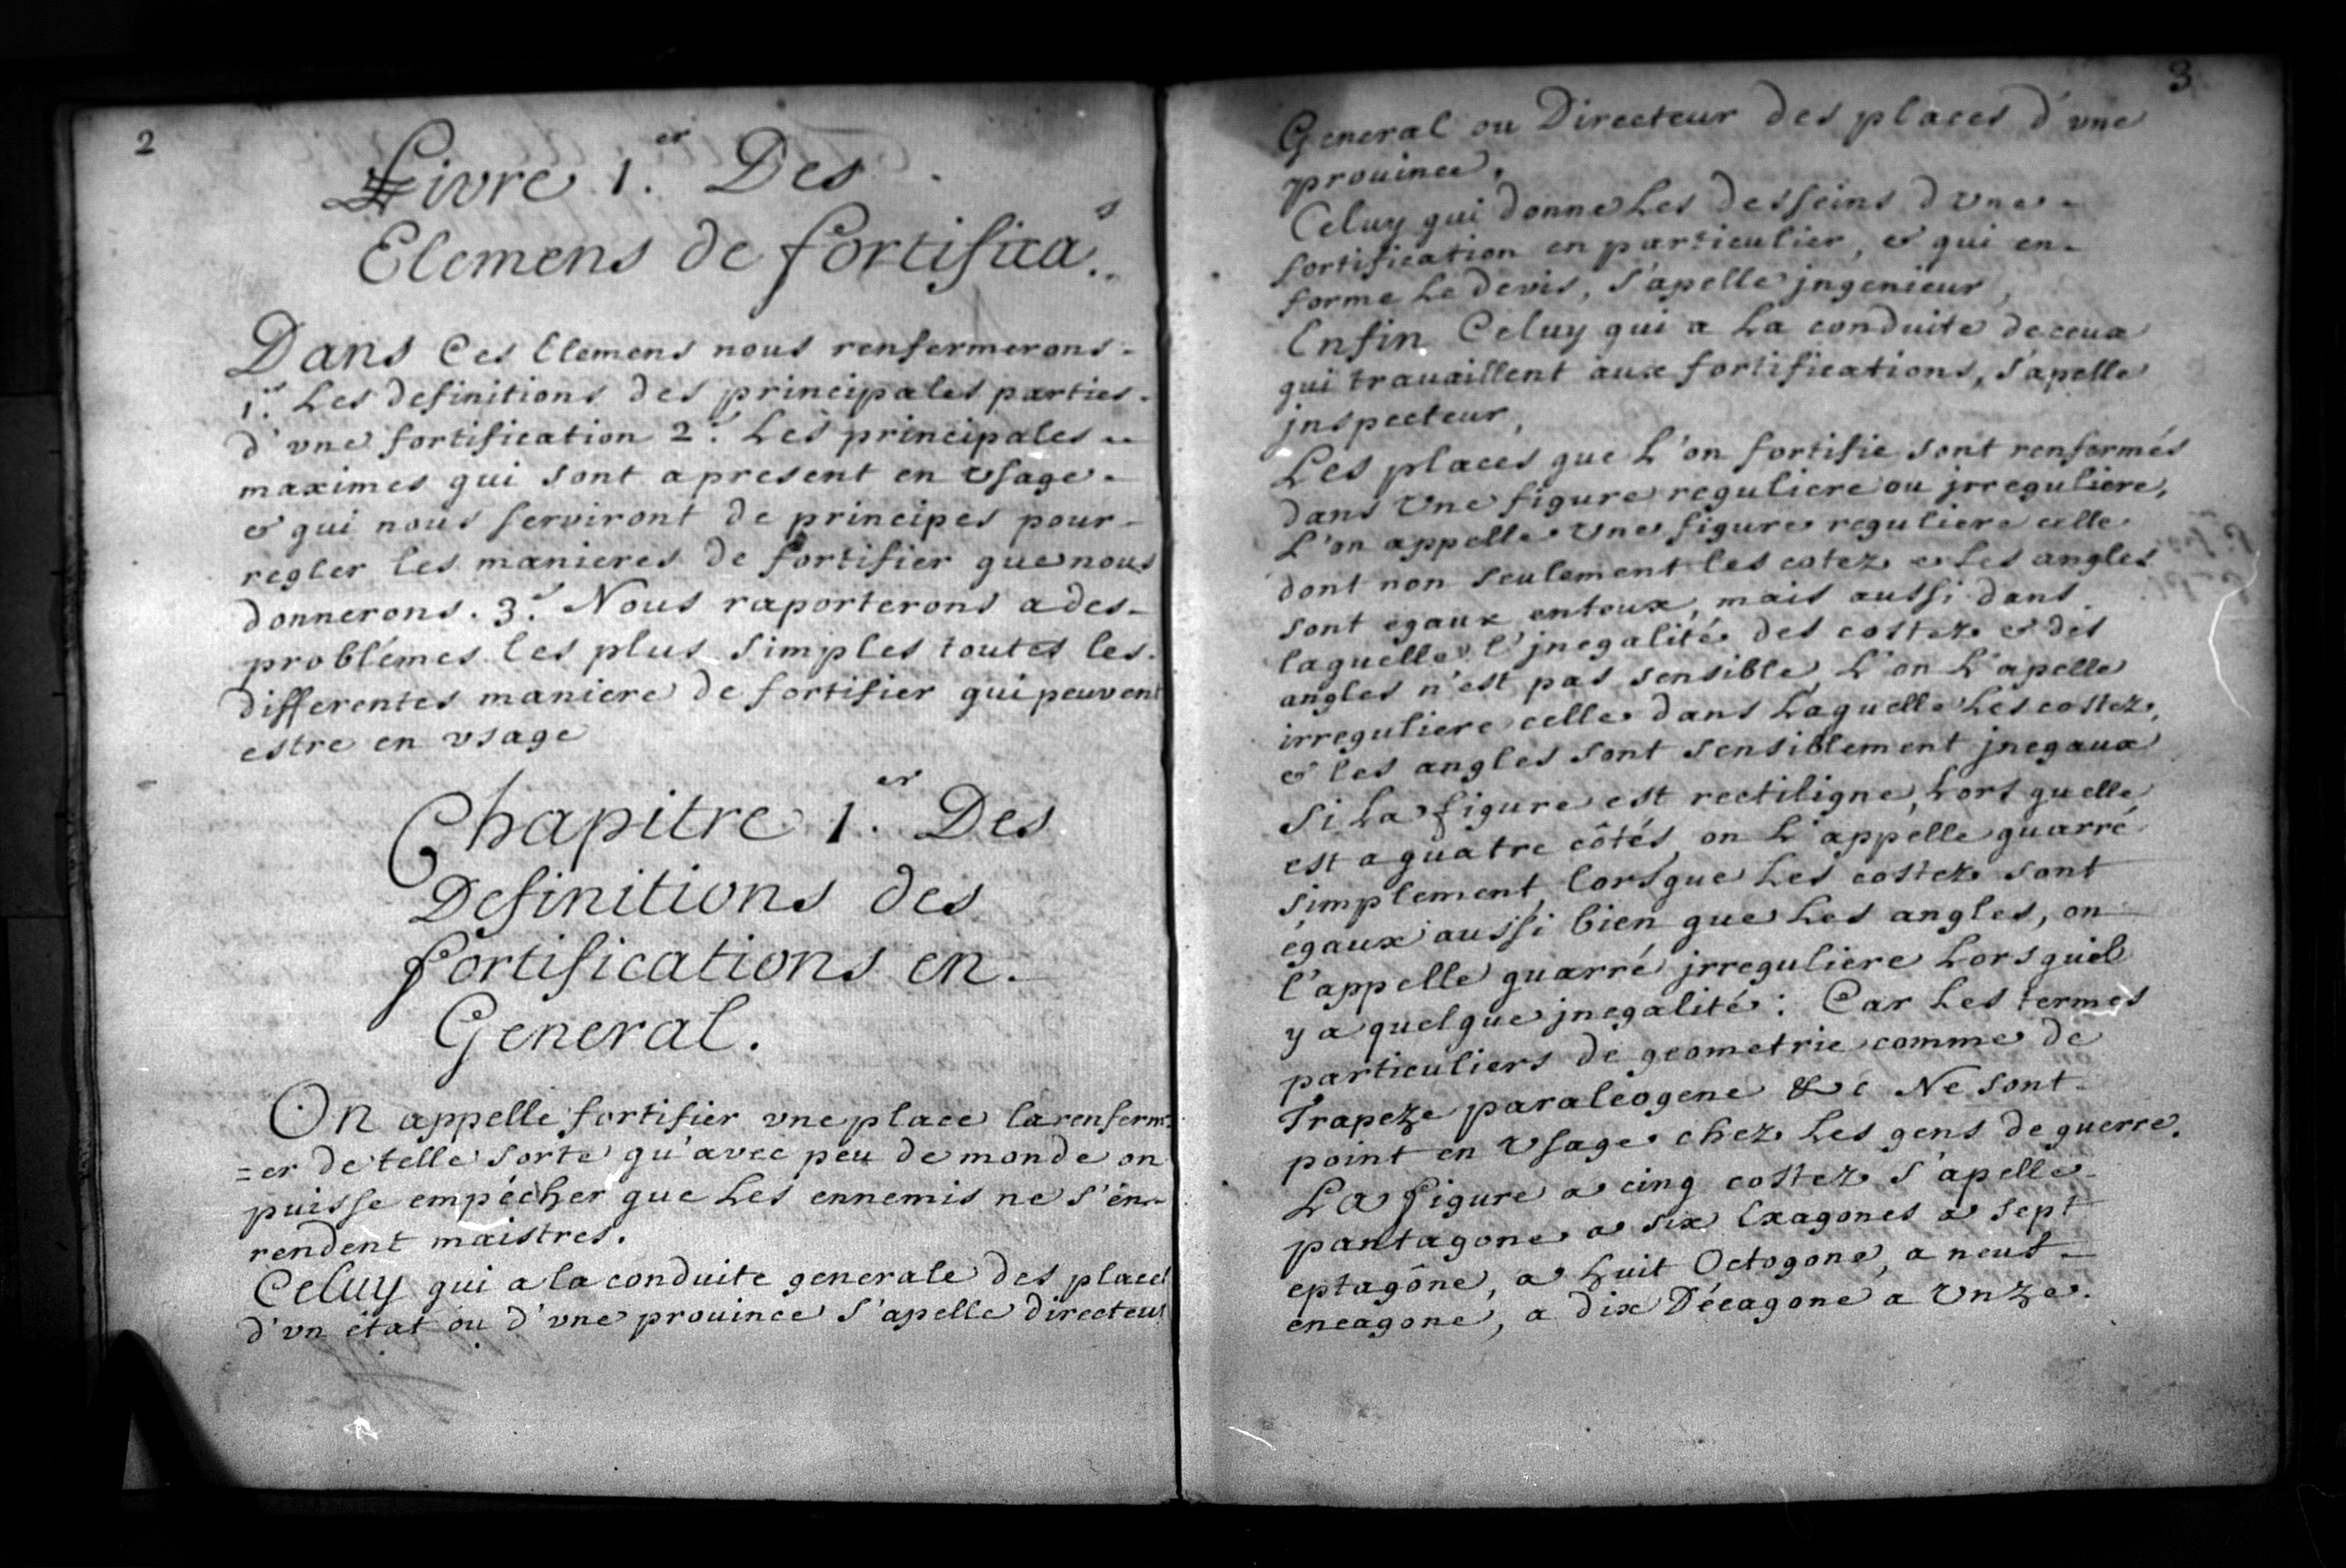 2
Livre 1.er Des
Elemens de fortifica.s
Dans Ces Elemens nous renfermerons-
1.t Les definitions des principales parties-
d'vne fortification 2.t Les principales
maximes qui sont apresent en vsage-
& qui nous serviront de principes pour-
regler les manieres de fortifier que nous
donnerons. 3.t Nous raporterons a des-
problémes les plus simples toutes les.
differentes maniere de fortifier qui peuvent
estre en vsage
Chapitre 1.er Des
Definitions des
fortifications en.
General.
On appelle fortifier vne place la renferm
=er de telle sorte qu'avec peu de monde on
puisse empécher que Les ennemis ne s'én-
rendent maistres.
Celuy qui a la conduite generale des places
d'vn état ou d'vne prouince s'apelle directeur
3
General ou Directeur des places d'vne
prouince,
Celuy qui donne Les desseins d Une-
fortification en particulier, & qui en-
forme Le devis, s'apelle jngenieur,
Enfin Celuy qui a La conduite de ceux
qui trauaillent aux fortifications, s'apelle
jnspecteur,
Les places que L'on fortifie sont renfermés
dans Une figure reguliere ou jrreguliere,
L'on appelle Une figure reguliere celle
dont non seulement les cotez & Les angles
sont égaux entoux, mais aussi dans
laquelle l'jnegalité des costez & des
angles n'est pas sensible, L'on L'apelle
irreguliere celle dans Laquelle Les costez,
& les angles sont sensiblement jnegaux
Si La figure est rectiligne, Lors quelle
est a quatre côtés, on L'appelle quarré
simplement, lorsque Les costez sont
égaux aussi bien que Les angles, on
l'appelle quarré jrreguliere Lors quil
y a quelque jnegalité: Car Les termes
particuliers de geometrie comme de
Trapeze paraleogene & c Ne sont-
point en Vsage chez Les gens de guerre.
La figure a cinq costez s'apelle-
pantagone a six Exagones a sept
eptagône, a huit Octogone, a neuf-
eneagone, a dix Décagone a Vnze.